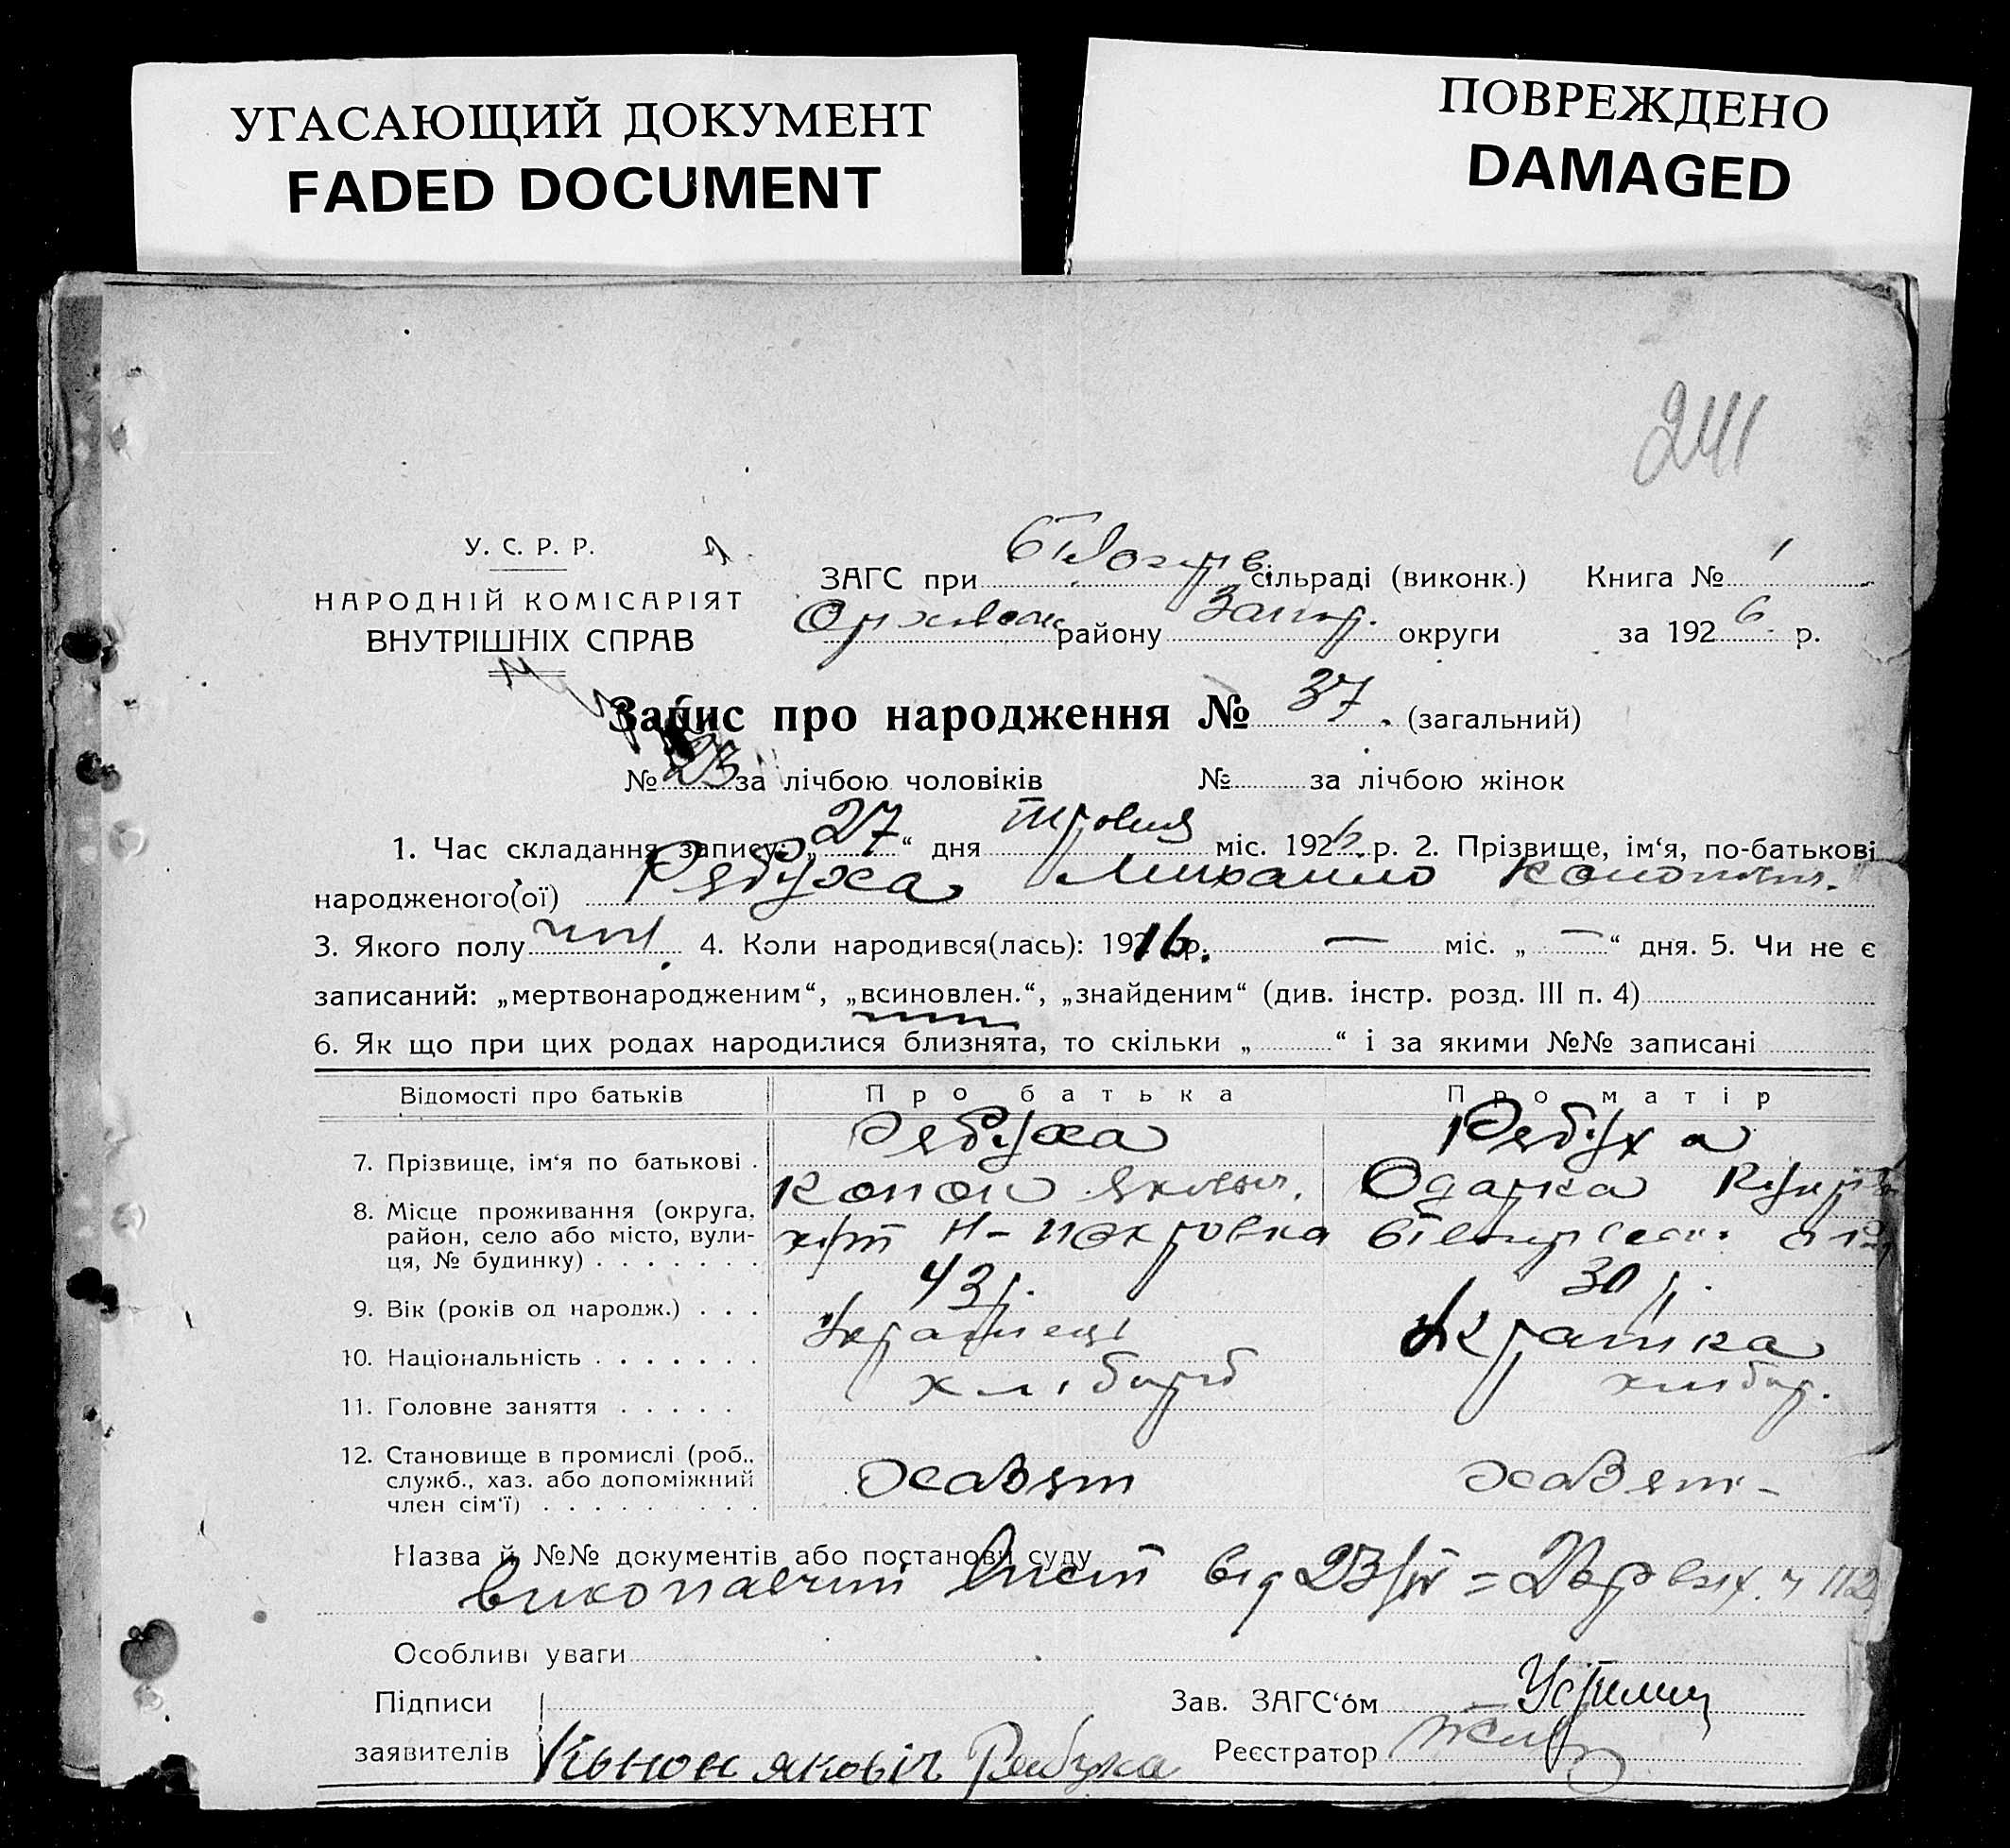 УГАСАЮЩИЙ ДОКУМЕНТ
FADED DOCUMENT
ПОВРЕЖДЕНО
DAMAGED
241
У. С. Р. Р.
НАРОДНІЙ КОМІСАРІЯТ
ВНУТРІШНІХ СПРАВ
ЗАГС при сільраді (виконк.) Книга № 1
району Запор. округи за 1926 р.
Запис про народження № 37. (загальний)
№ 23 за лічбою чоловіків № за лічбою жінок
1. Час складання запису: „27“ дня травня міс. 1926 р. 2. Прізвище, ім‘я, по-батькові
народженого(ої) Рябуха Михайло
3. Якого полу чол. 4. Коли народився(лась): 1916 р. — міс. „—“ дня. 5. Чи не є
записаний: „мертвонародженим“, „всиновлен.“, „знайденим“ (див. інстр. розд. III п. 4)
6. Як що при цих родах народилися близнята, то скільки „ “ і за якими №№ записані
Відомості про батьків Про батька Про матір
7. Прізвище, ім‘я по батькові . Рябуха Рябуха
Конон Якович. Одарка
8. Місце проживання (округа, район, село або місто, вулиця, № будинку) . . . . . . . хут Н-Покровка
9. Вік (років од народж.) . . . 43 р. 30 р.
10. Національність . . . . . . . Українець Українка
11. Головне заняття . . . . . хлібороб хлібор.
12. Становище в промислі (роб., служб., хаз. або допоміжний член сім‘ї) . . . . . . . . . хазяїн хазяїн-
Назва й №№ документів або постанови суду
виконавчий лист від 23/IV = 26 р
Особливі уваги
Підписи Зав. ЗАГС‘ом
заявителів Конон Яковіч Рябуха Реєстратор